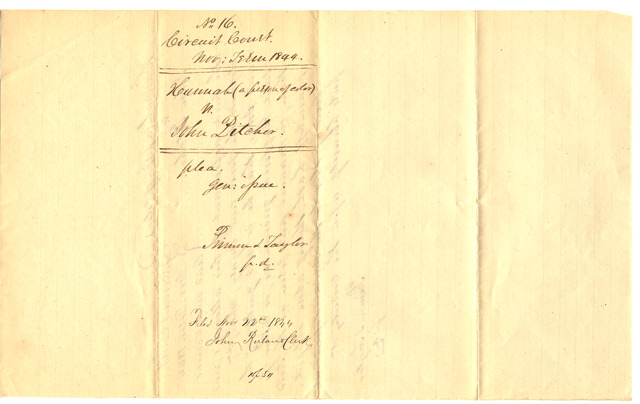 No. 16.
Circuit Court.
Nov: Term 1844.
Hannah (a person of color)
v.
John Pitcher.
plea.
gen: issue.
& Taylor
p. d.
Filed Nov 22nd 1844
John Ruland Clerk.